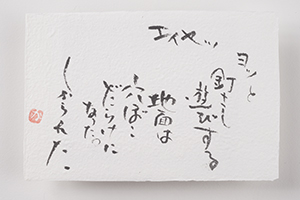 エイヤッ
ヨッと
釘さし
遊びする
地面は
穴ぼこ
だらけに
なった。
しかられた